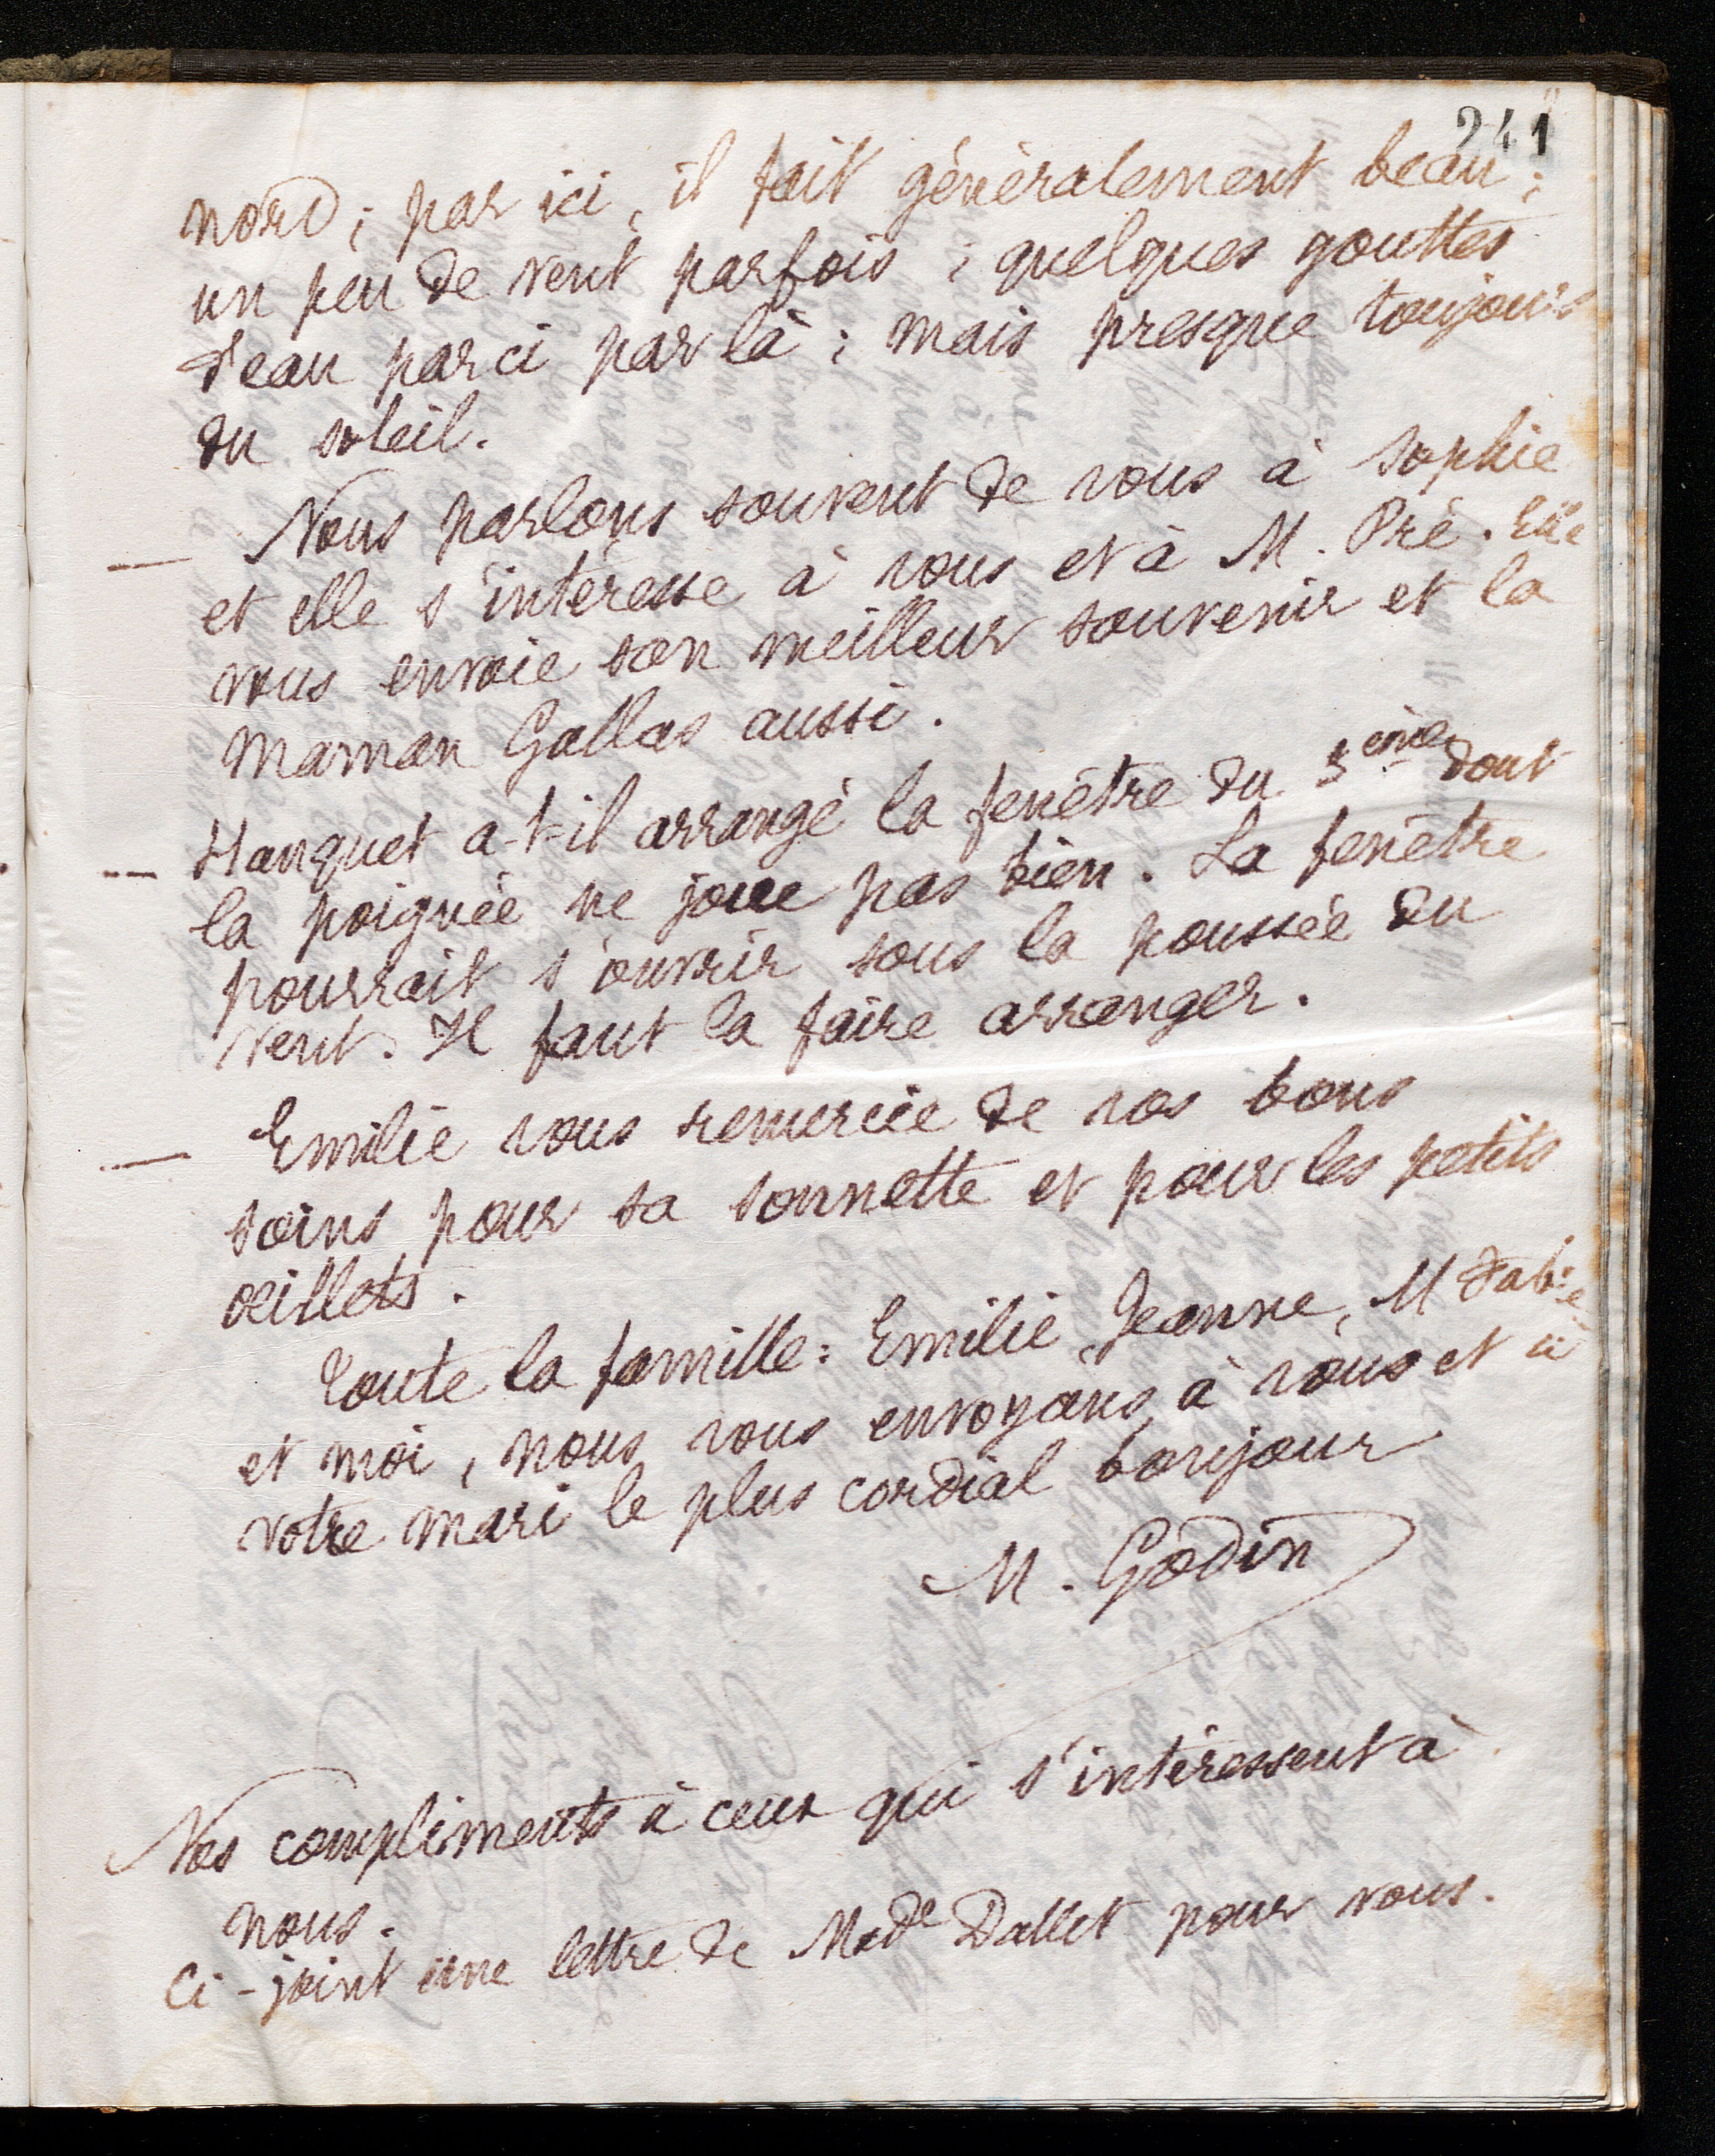 241
nord ; par ici, il fait généralement beau ;
un peu de vent parfois ; quelques gouttes
d'eau par ci par là ; mais presque toujours
du soleil.
— Nous parlons souvent de vous à Sophie
et elle s'intéresse à vous et à M. Pré. Elle
vous envoie son meilleur souvenir et la
maman Gallas aussi.
— Hanquet a-t-il arrangé la fenêtre du 3ème dont
la poignée ne joue pas bien. La fenêtre
pourrait s'ouvrir sous la poussée du
vent. Il faut la faire arranger.
— Emilie vous remercie de vos bons
soins pour sa sonnette et pour les petits
œillets.
Toute la famille : Emilie, Jeanne, M Fabre
et moi, nous vous envoyons, à vous et à
votre mari le plus cordial bonjour
M. Godin
Nos compliments à ceux qui s'intéressent à
nous.
Ci-joint une lettre de Made Dallet pour vous.